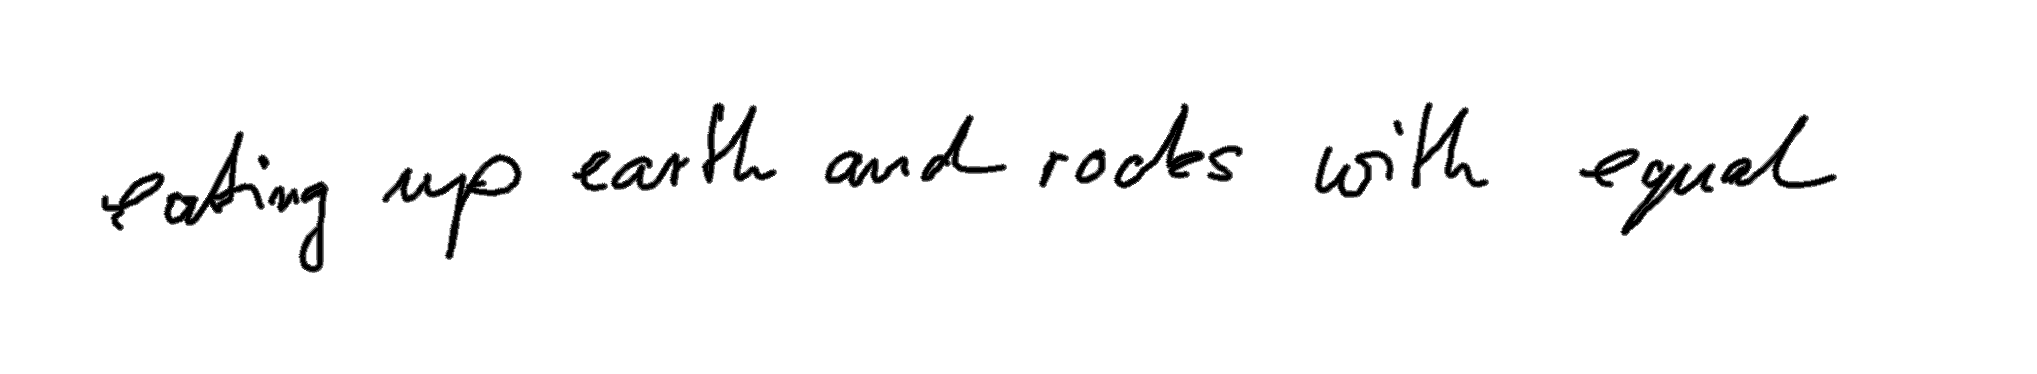 eating up earth and rocks with equal